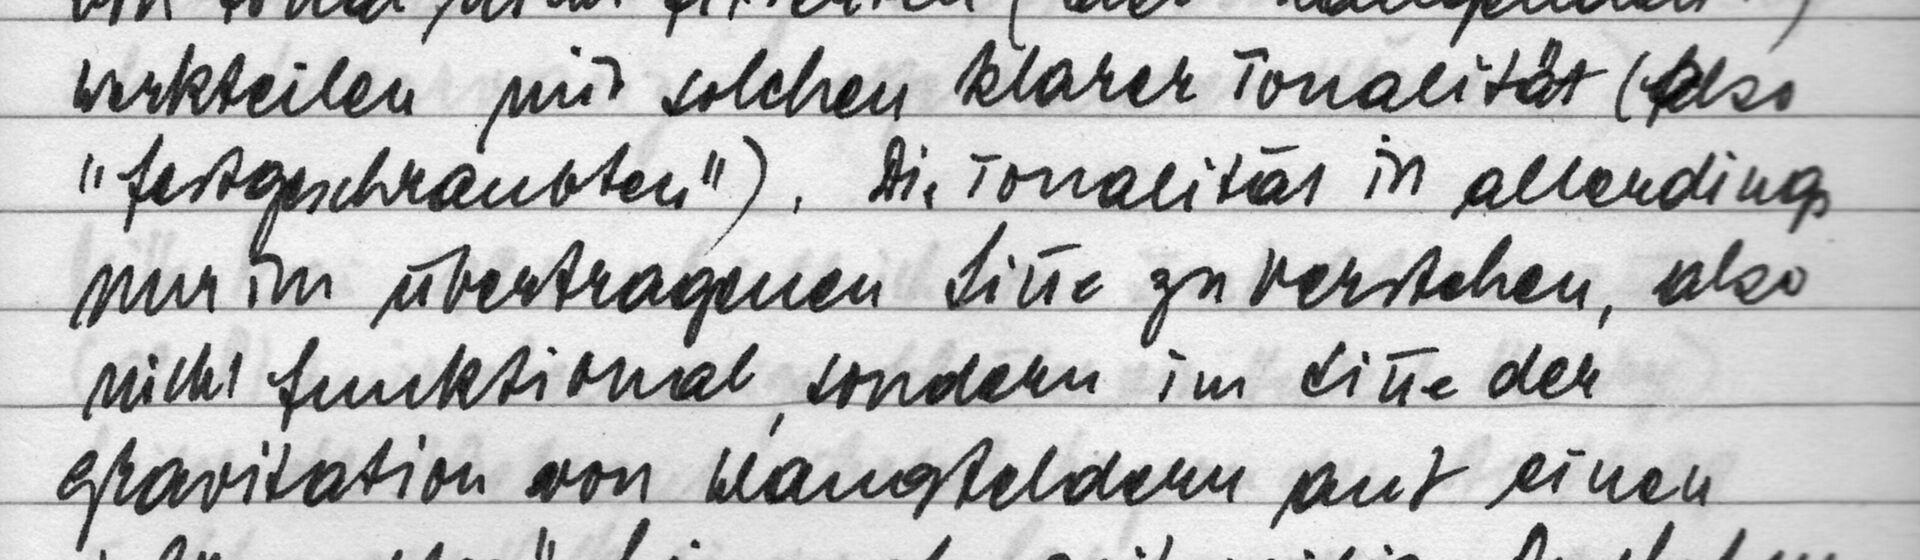 von tonal nicht fixierten (
Werkteilen mit solchen klarer Tonalität (also
"festgeschraubten"). Die Tonalität in allerdings
nur im übertragenen Sin̄e zu verstehen, also
nicht funktional, sondern im Sin̄e der
Gravitation von Klangfeldern auf einen